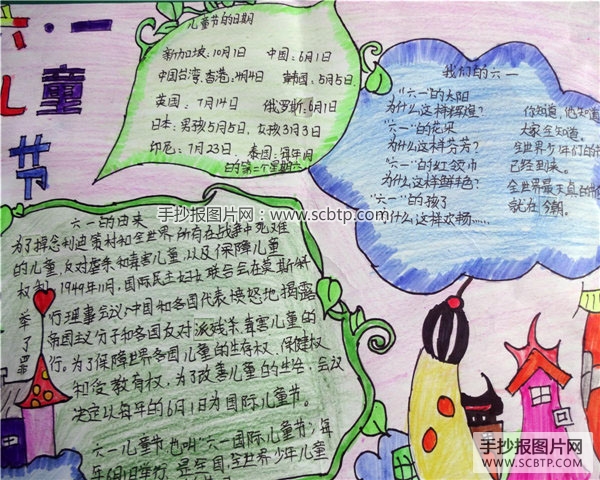 六·一
儿童
节
儿童节的日期
新加坡：10月1日 中国：6月1日
中国台湾，香港：4月4日 韩国：5月5日
英国：7月14日 俄罗斯：6月1日
日本：男孩5月5日，女孩3月3日
印尼：7月23日 泰国：每年1月
的第二个星期六
我们的六一
"六一"的太阳
为什么这样辉煌？
"六一"的花朵
为什么这样芬芳？
"六一"的红领巾
为什么这样鲜艳？
"六一"的孩子
为什么这样欢畅……
你知道，他知道
大家全知道。
全世界少年们的节
已经到来。
全世界最天真的
就在今朝。
手抄报图片网：www.scbtp.com
六一的由来
为了悼念利迪策村和全世界所有在战争中死难
的儿童，反对虐杀和毒害儿童，以及保障儿童
权利，1949年11月，国际民主妇女联合会在莫斯科
举行理事会议，中国和各国代表愤怒地揭露
了帝国主义分子和各国反对派残杀、毒害儿童的
罪行。为了保障世界各国儿童的生存权、保健权
和受教育权，为了改善儿童的生活，会议
决定以每年的6月1日为国际儿童节。
六一儿童节，也叫"六一国际儿童节"，每年
6月1日举行，是全国全世界少年儿童
手抄报图片网
WWW.SCBTP.COM